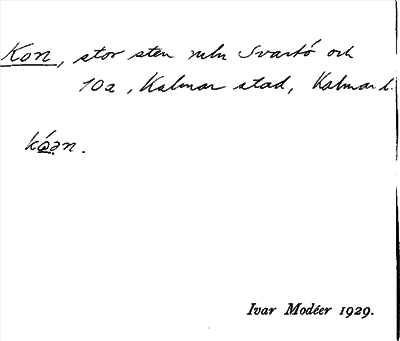 Kon, stor sten mln Svartö och
10a, Kalmar stad, Kalmar l.
kǿən.
Ivar Modéer 1929.